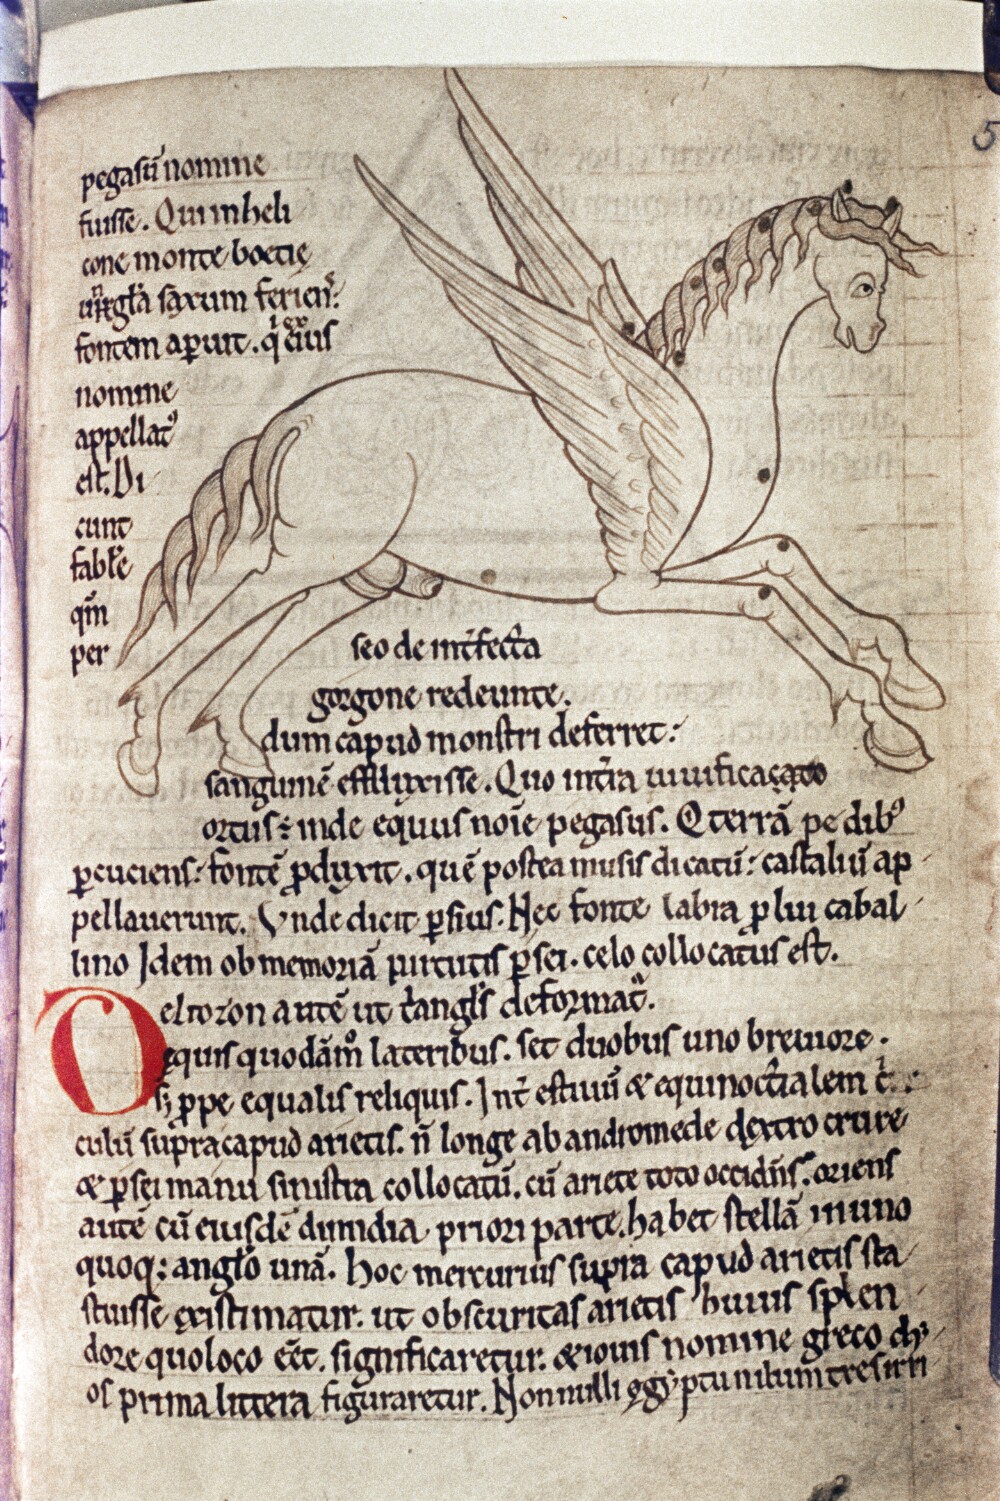 5
pegasū nomine
fuisse. Qui in heli
cone monte boetię
ungła saxum ferienˢ:
fontem apuit. q̇ ex
eius
nomine
appellatꝰ
est. Di
cunt
fabłe
qm̄
per
seo de int̄fecta
gorgone redeunte.
dum capud monstri deferret:
sanguinē effluxisse. Quo int̄ra uiuificato
ortus: inde equus noīe pegasus. Q terrā pedibꝰ
ꝑcuciens: fontē ꝓduxit. quē postea musis dicatū: castaliū ap
pellauerunt. Vnde dicit ꝑsius. Nec fonte labra ꝓlui cabal
lino Idem ob memoriā uirtutis ꝑsei. celo collocatus est.
Deltozon autē ut t̄anglˢ deformat̄.
equis quodāmº lateribus. set duobus uno breuiore.
ꝓpe equalis reliquis. Int̄ estiuū & equinoctialem
culū supra capud arietis. n̄ longe ab andromede dextro crure
& ꝑsei manu sinistra collocatū. cū ariete toto occidn̄s. oriens
autē cū eiusdē dimidia priori parte. habet stellā in uno
quoq: angło unā. hoc mercurius supra capud arietis sta
tuisse existimatur. ut obscuritas arietis huius splen
dore quo loco eēt. significaretur. & iouis nomine greco dy
os prima littera figuraretur. Non nulli ęgyptum